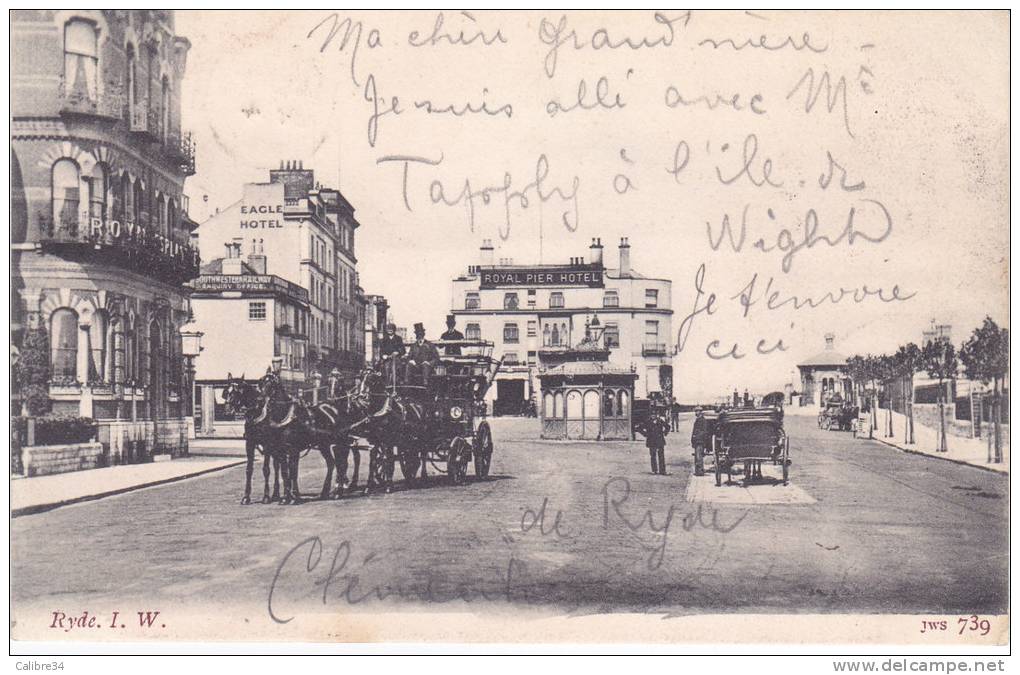 Ma chèr Grand'mère
Je suis allé avec Me
à l'île de
Wight
Je t'envoie
ceci
de Ryde
Clément
EAGLE
HOTEL
ROYAL PIER HOTEL
SOUTHWESTERN RAILWAY
ENQUIRY OFFICE
ROYAL
Ryde. I. W.
JWS 739
Calibre34
www.delcampe.net